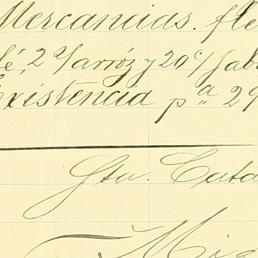 Mercancias. fle
fé, 2 S/ arróz y 20 c/ Jab
Existencia pª 29
Gta. Cata
Mig